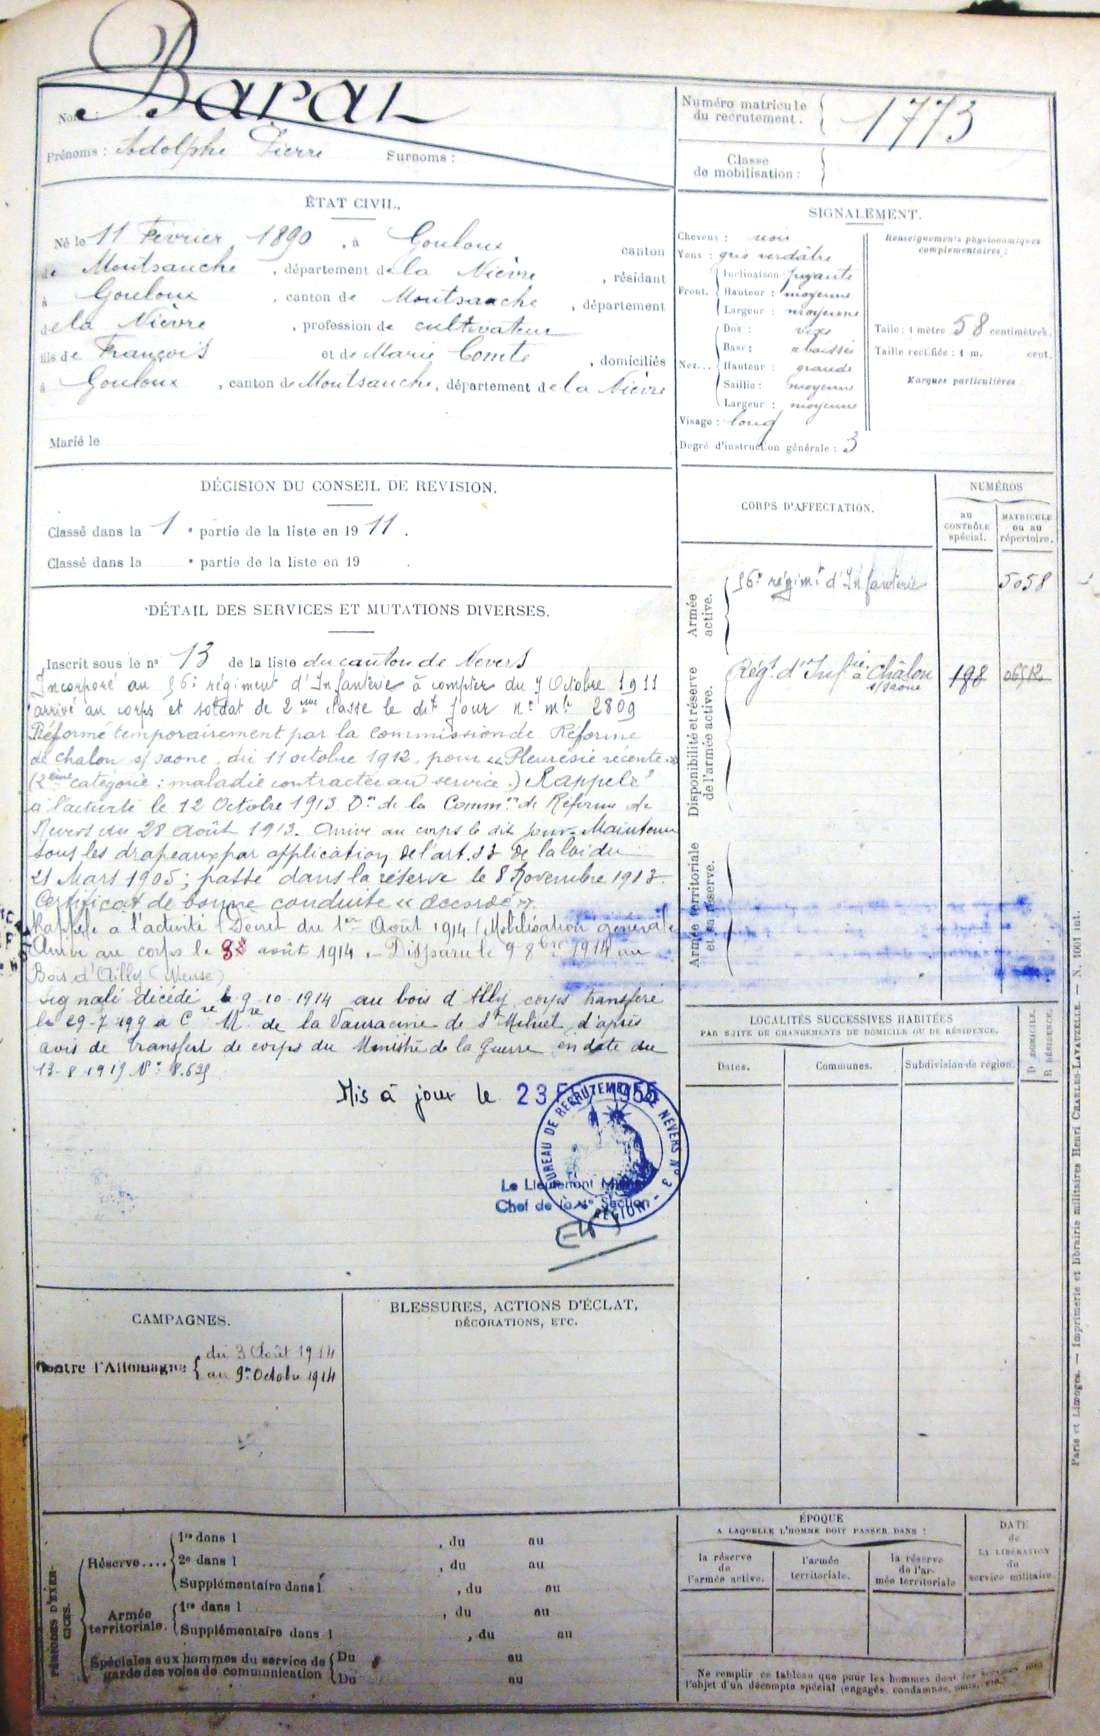 Nom : Barat
Prénoms : Adolphe Pierre Surnoms :
Numéro matricule du recrutement. 1773
Classe de mobilisation :
ÉTAT CIVIL.
Né le 11 Février 1890, à Gouloux canton
de Montsauche, département de la Nièvre, résidant
à Gouloux, canton de Montsauche, département
de la Nièvre, profession de cultivateur
fils de François et de Marie Comte, domiciliés
à Gouloux, canton de Montsauche, département de la Nièvre
Marié le
SIGNALEMENT.
Cheveux : noir
Yeux : gris verdâtre
Front. Inclinaison : fuyante
Hauteur : moyenne
Largeur : moyenne
Nez... Dos : vexe
Base : abaissée
Hauteur : grande
Saillie : moyenne
Largeur : moyenne
Visage : long
Degré d'instruction générale : 3
Renseignements physionomiques complémentaires :
Taille : 1 mètre 58 centimètres.
Taille rectifiée : 1 m. cent.
Marques particulières
DÉCISION DU CONSEIL DE REVISION.
Classé dans la 1e partie de la liste en 1911.
Classé dans la e partie de la liste en 19 .
DÉTAIL DES SERVICES ET MUTATIONS DIVERSES.
Inscrit sous le n° 13 de la liste du canton de Nevers
Incorporé au 56e régiment d'Infanterie à compter du 7 Octobre 1911
arrivé au corps et soldat de 2me classe le dit jour no mle 2809
Réformé temporairement par la commission de Réforme
de Chalon s/ saone, du 11 octobre 1912, pour « Pleurésie récente »
(2ème catégorie : maladie contractée au service.) Rappelé
à l'activité le 12 Octobre 1913 Don de la Common de Réforme de
Nevers du 28 Août 1913. Arrivé au corps le dit jour. Maintenu
sous les drapeaux par application de l'art. 33 de la loi du
21 Mars 1905 ; passé dans la réserve le 8 Novembre 1913.
Certificat de bonne conduite « accordé ».
Rappelé à l'activité (Décret du 1er Août 1914 (Mobilisation générale
Arrivé au corps le août 1914. Disparu le 9 8bre 1914 au
Bois d'Ailly (Meuse)
Signalé décédé le 9-10-1914 au bois d'Ailly, corps transféré
le 29-7 à Cre Mre de la Vauracine de St Mihiel, d'après
avis de transfert de corps du Ministre de la Guerre en date du
Mis à jour le 23 1955
BUREAU DE RECRUTEMENT DE NEVERS N° 3 - RÉGION
Le Lieutenant
Chef de la Section
CORPS D'AFFECTATION.
NUMÉROS
au CONTRÔLE spécial.
MATRICULE ou au répertoire.
Armée active.
56e régimt d'Infanterie 5058
Disponibilité et réserve de l'armée active.
Régt d'Infrie à Châlon s/saone 198
Armée territoriale et sa réserve.
LOCALITÉS SUCCESSIVES HABITÉES
PAR SUITE DE CHANGEMENTS DE DOMICILE OU DE RÉSIDENCE.
Dates.
Communes.
Subdivision de région.
D. DOMICILE.
R. RÉSIDENCE.
CAMPAGNES.
Contre l'Allemagne { du 3 Août 1914
au 9 Octobre 1914
BLESSURES, ACTIONS D'ÉCLAT,
DÉCORATIONS, ETC.
PÉRIODES D'EXERCICES.
Réserve.... 1re dans l , du au
2e dans l , du au
Supplémentaire dans l , du au
Armée territoriale. 1re dans l , du au
Supplémentaire dans l , du au
Spéciales aux hommes du service de garde des voies de communication Du au
Du au
ÉPOQUE
A LAQUELLE L'HOMME DOIT PASSER DANS :
la réserve de l'armée active.
l'armée territoriale.
la réserve de l'armée territoriale
DATE de LA LIBÉRATION du service militaire.
Ne remplir ce tableau que pour les hommes dont les services font
l'objet d'un décompte spécial (engagés, condamnés, omis, etc.
Paris et Limoges. — Imprimerie et librairie militaires Henri CHARLES-LAVAUZELLE.